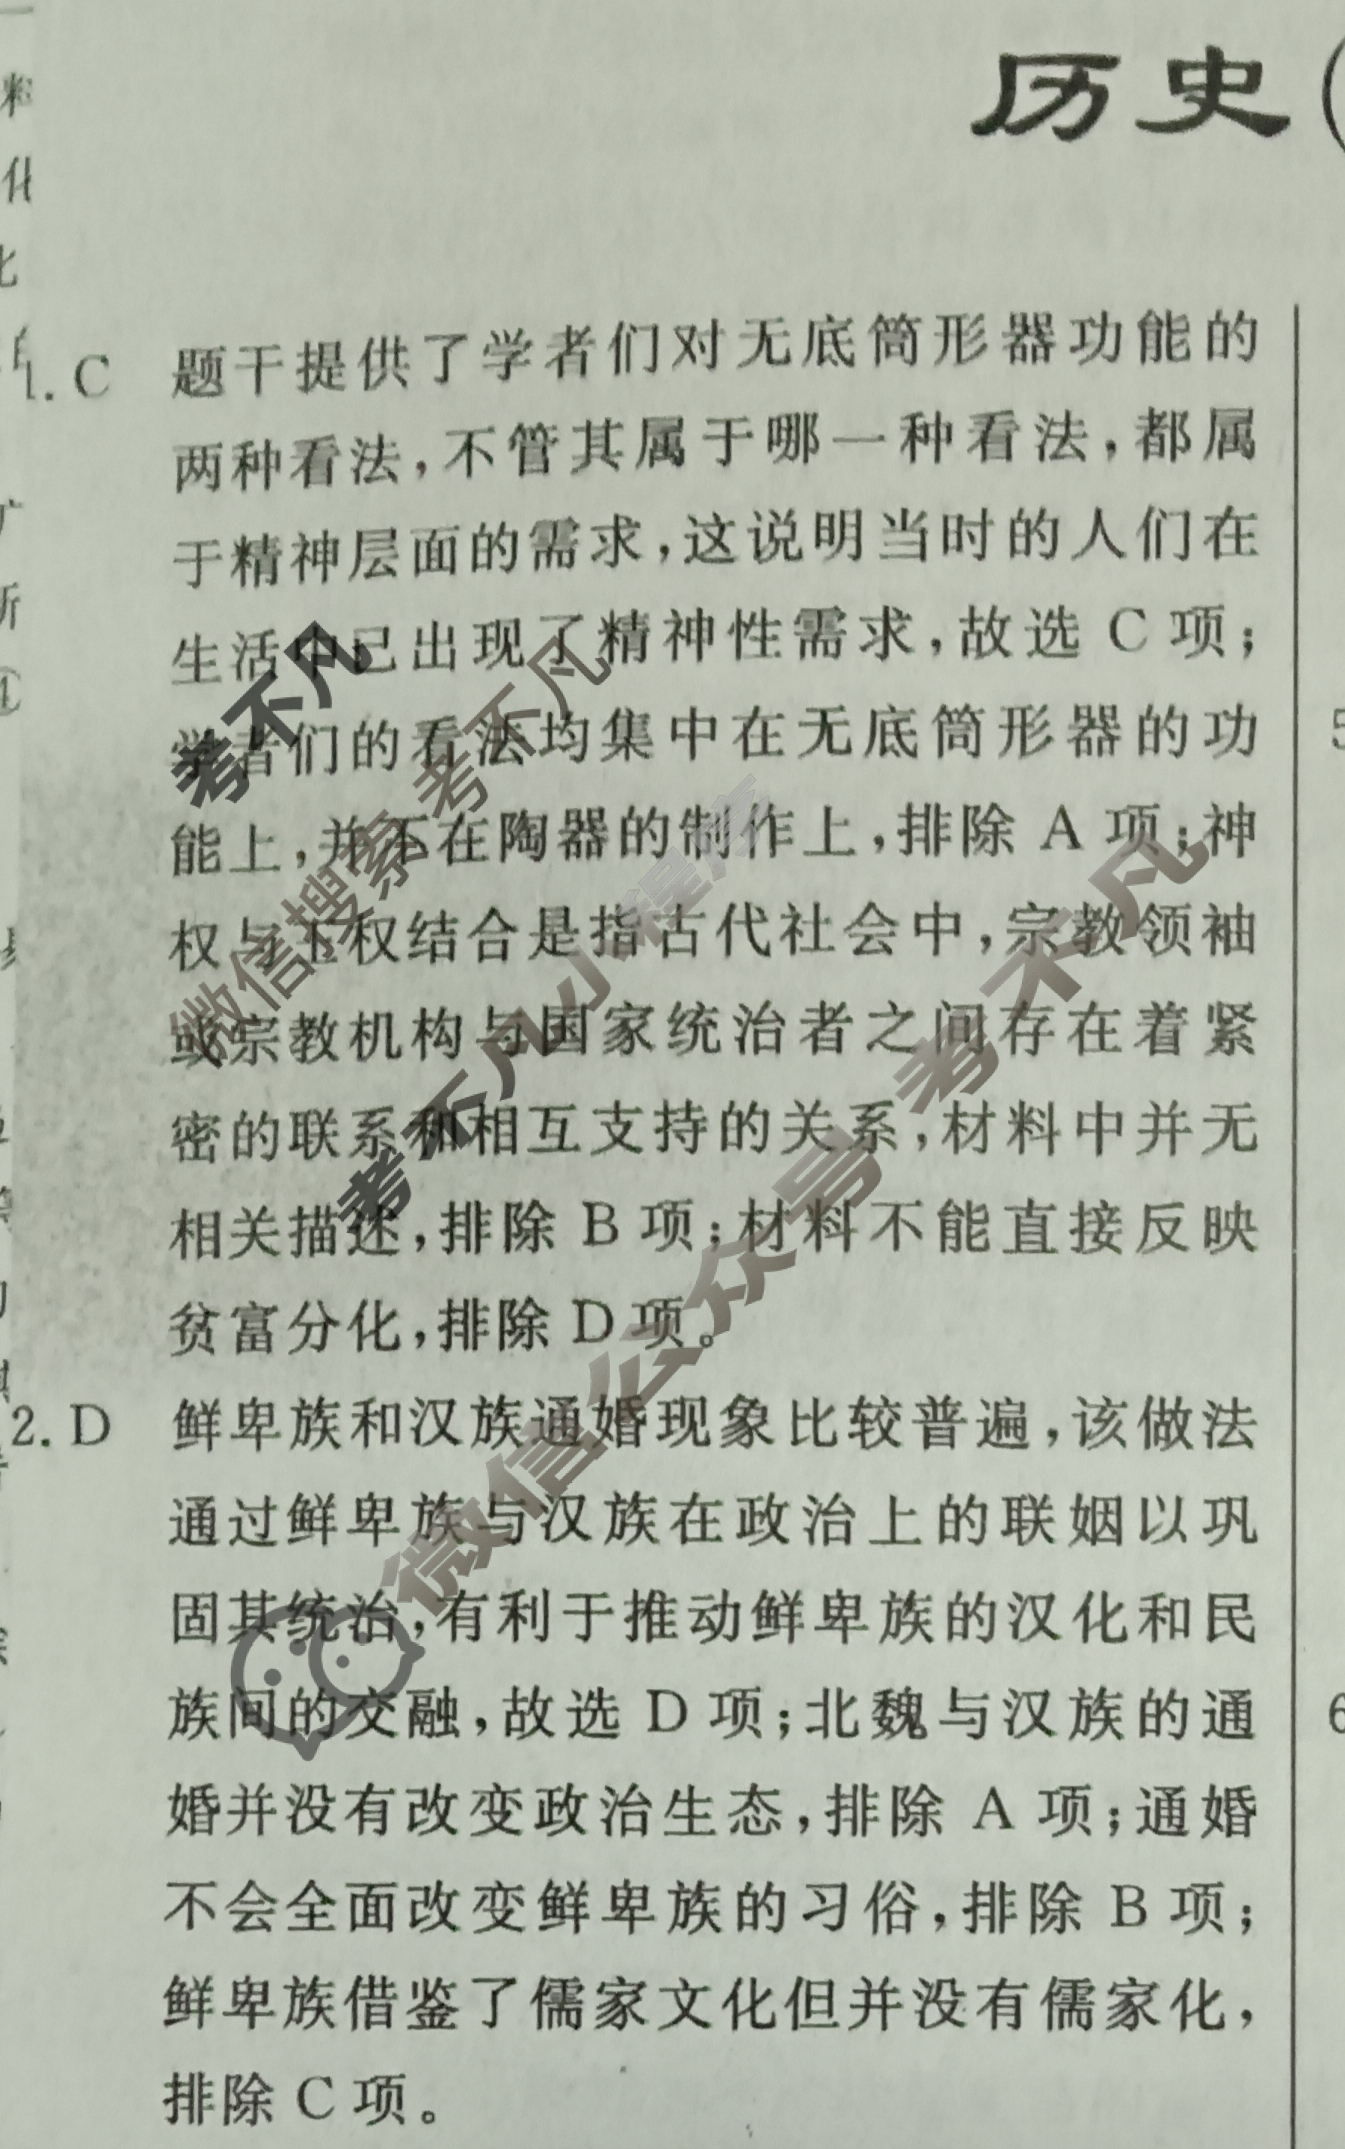 历史(
1. C 题干提供了学者们对无底筒形器功能的
两种看法,不管其属于哪一种看法,都属
于精神层面的需求,这说明当时的人们在
生活中已出现了精神性需求,故选 C 项;
学者们的看法均集中在无底筒形器的功
能上,并不在陶器的制作上,排除 A 项;神
权与王权结合是指古代社会中,宗教领袖
或宗教机构与国家统治者之间存在着紧
密的联系和相互支持的关系,材料中并无
相关描述,排除 B 项;材料不能直接反映
贫富分化,排除 D 项。
2. D 鲜卑族和汉族通婚现象比较普遍,该做法
通过鲜卑族与汉族在政治上的联姻以巩
固其统治,有利于推动鲜卑族的汉化和民
族间的交融,故选 D 项;北魏与汉族的通
婚并没有改变政治生态,排除 A 项;通婚
不会全面改变鲜卑族的习俗,排除 B 项;
鲜卑族借鉴了儒家文化但并没有儒家化,
排除 C 项。
5
6
考不凡
微信搜索 考不凡
考不凡小程序
微信公众号 考不凡